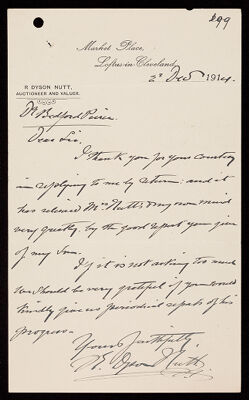 299
Market Place,
Loftus-in-Cleveland,
2d Dec 1914.
R. DYSON NUTT,
AUCTIONEER AND VALUER.
Dr Bedford Pierce
Dear Sir,
I thank you for your courtesy
in replying to me by return: and it
has relieved Mrs Nutt's & my own mind
very greatly, by the good report you give
of my Son.
If it is not asking too much
we should be very grateful if you would
kindly give us periodical reports of his
progress.
Yours faithfully,
R. Dyson Nutt